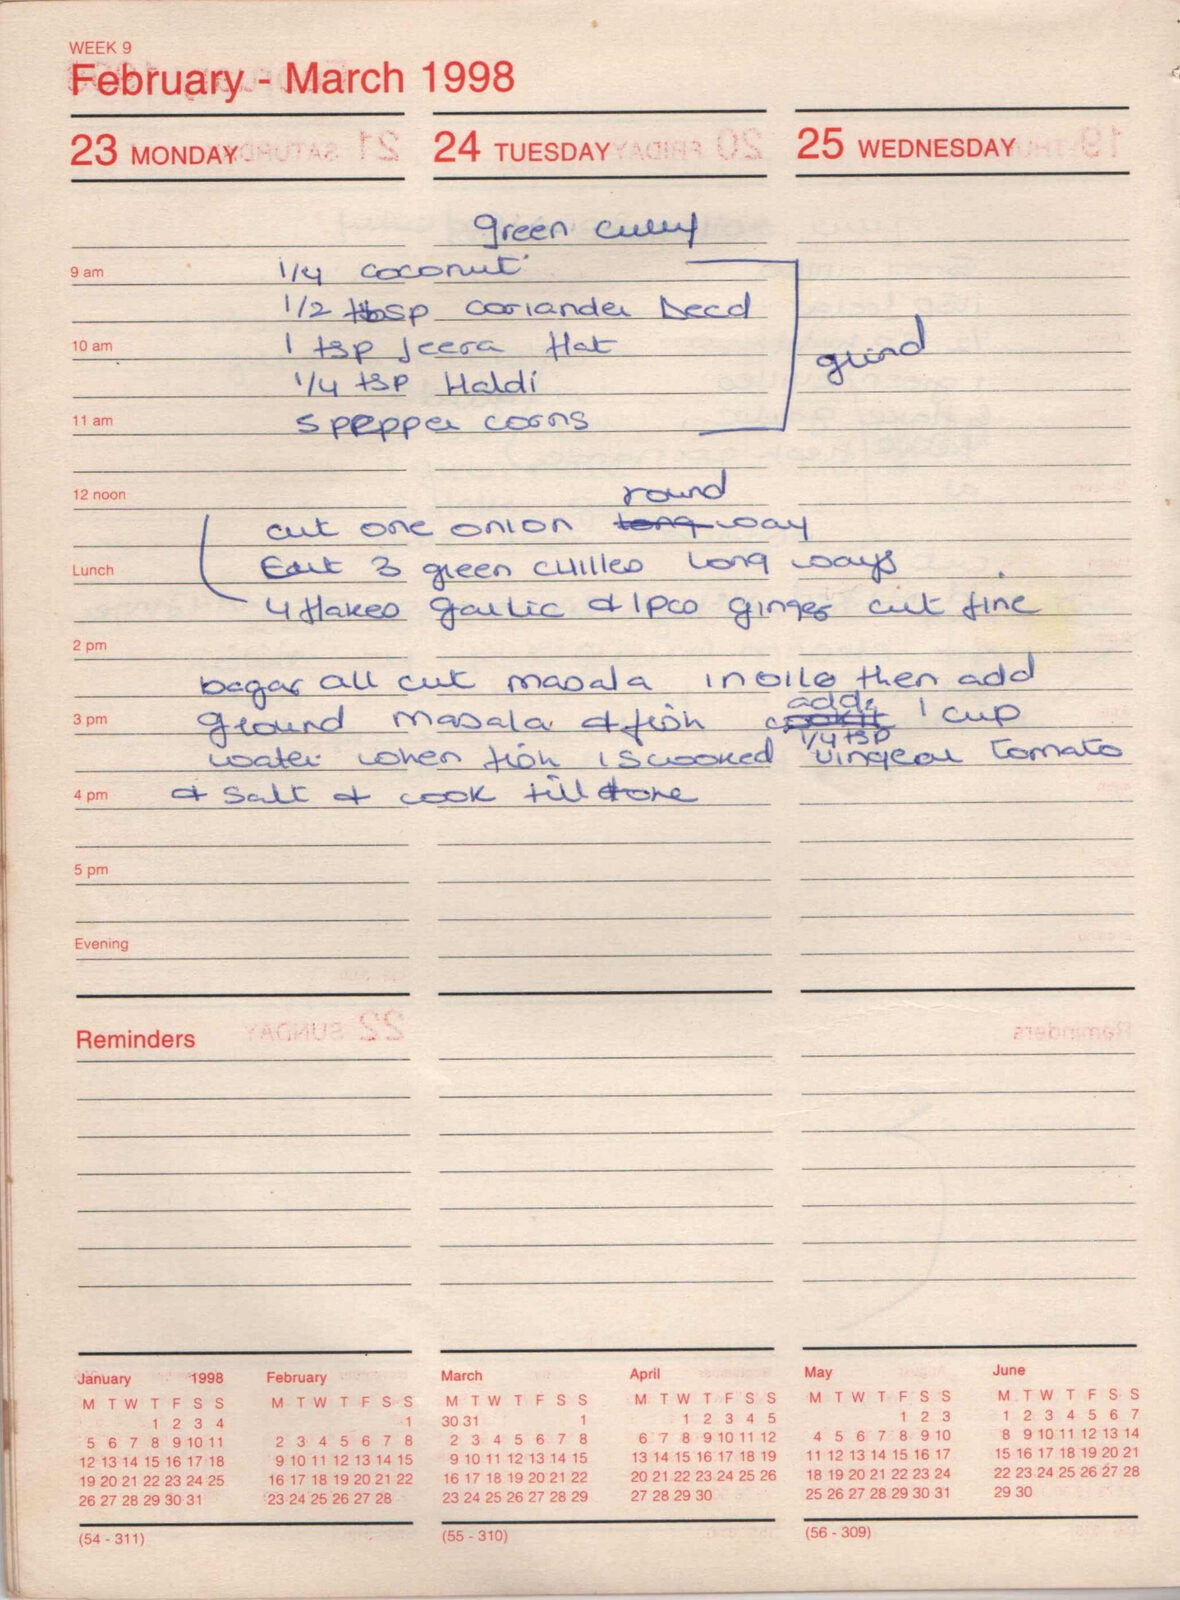 WEEK 9
February - March 1998
23 MONDAY 24 TUESDAY 25 WEDNESDAY
Green curry
9 am 1/4 coconut
1/2 tbsp coriander seed
10 am 1 tsp Jeera flat grind
1/4 tsp Haldi
11 am 5 pepper corns
12 noon round
cut one onion long way
Lunch Cut 3 green chilles long ways
4 flakes garlic & 1 pco ginger cut fine
2 pm
bagar all cut masala in oil then add
3 pm ground masala & fish add 1 cup
1/4 tsp
water when fish is cooked vingear tomato
4 pm & salt & cook till done
5 pm
Evening
Reminders
January 1998 February March April May June
M T W T F S S M T W T F S S M T W T F S S M T W T F S S M T W T F S S M T W T F S S
1 2 3 4 1 30 31 1 1 2 3 4 5 1 2 3 1 2 3 4 5 6 7
5 6 7 8 9 10 11 2 3 4 5 6 7 8 2 3 4 5 6 7 8 6 7 8 9 10 11 12 4 5 6 7 8 9 10 8 9 10 11 12 13 14
12 13 14 15 16 17 18 9 10 11 12 13 14 15 9 10 11 12 13 14 15 13 14 15 16 17 18 19 11 12 13 14 15 16 17 15 16 17 18 19 20 21
19 20 21 22 23 24 25 16 17 18 19 20 21 22 16 17 18 19 20 21 22 20 21 22 23 24 25 26 18 19 20 21 22 23 24 22 23 24 25 26 27 28
26 27 28 29 30 31 23 24 25 26 27 28 23 24 25 26 27 28 29 27 28 29 30 25 26 27 28 29 30 31 29 30
(54 - 311) (55 - 310) (56 - 309)